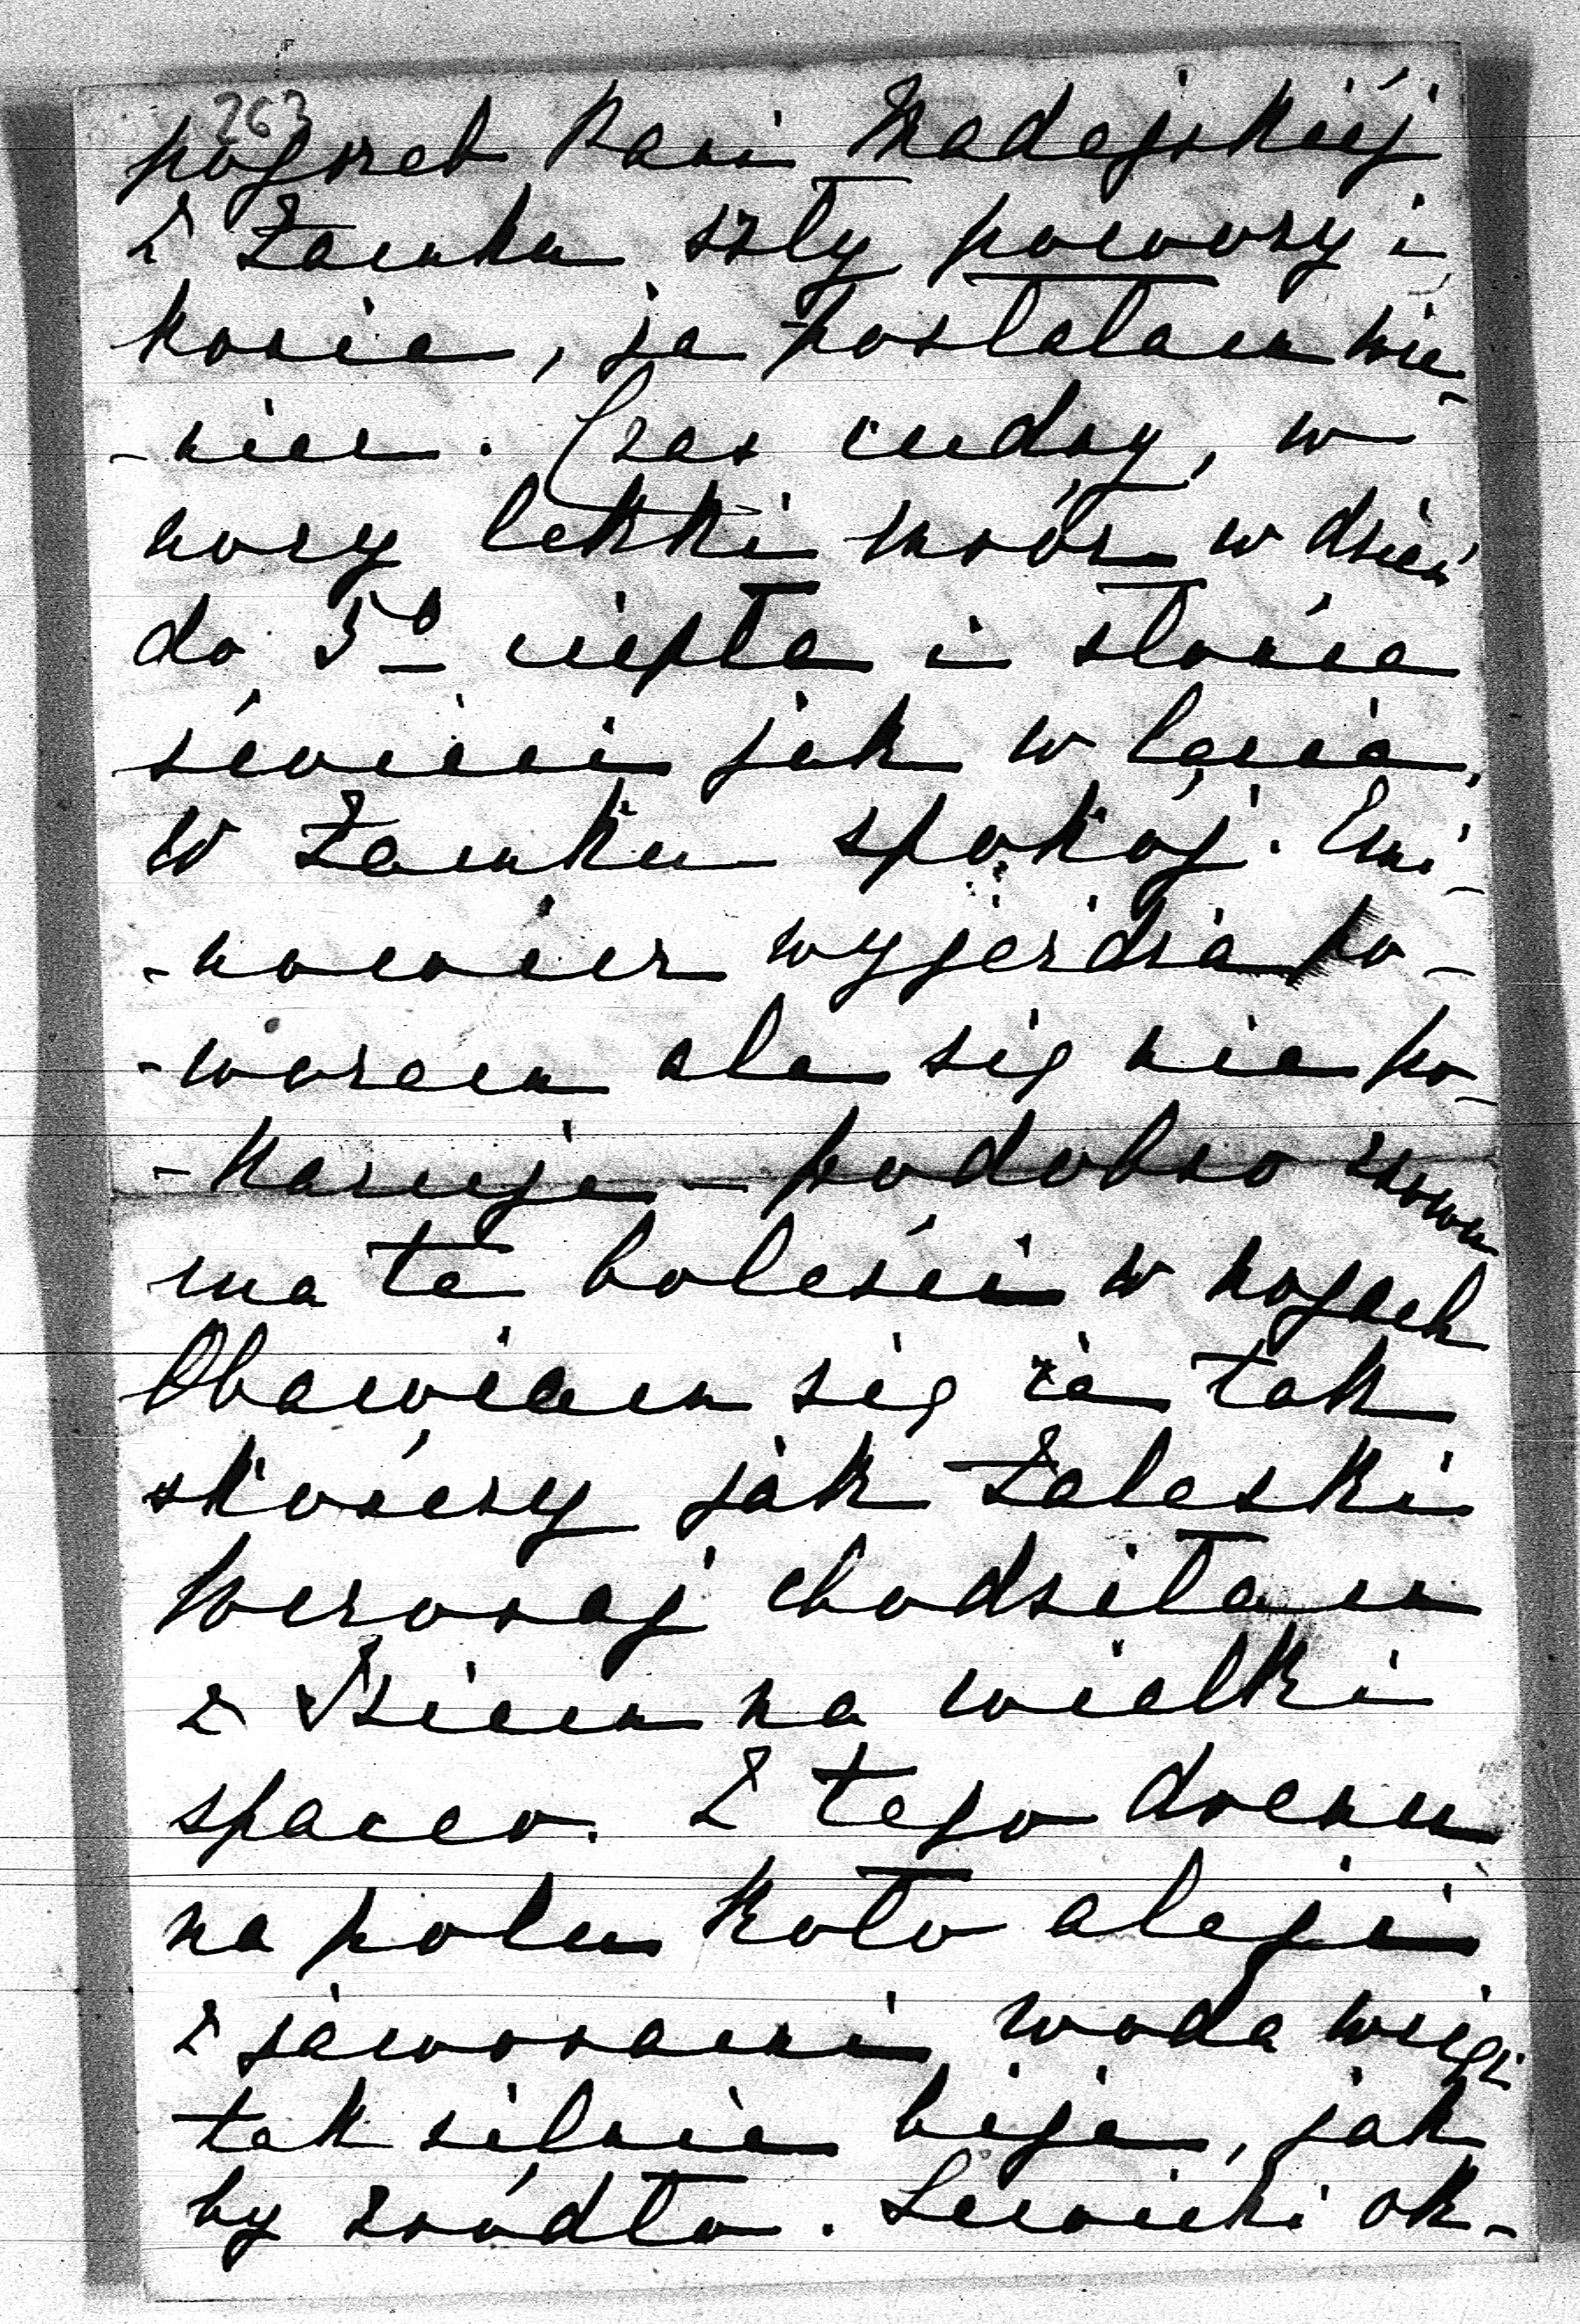 263
pogrzeb Pani Madejskiéj
z Zamku szły powozy i
konie, ja posłałam wie-
-niec. Czas cudny, w
nocy lekki mróz w dzień
do 5° ciepła i słońce
świeci jak w lecie,
W Zamku spokój. Emi-
-nowicz wyjeżdża po-
-wozem ale się nie po-
-kazuje - podobno znowu
ma te boleści w nogach
Obawiam się że tak
skończy jak Zaleski
Wczoraj chodziłam
z Iziem na wielki
spacer. Z tego drenu
na polu koło aleji
z jaworami woda wciąż
tak silnie bije, jak
by źródło. Lewicki ok-